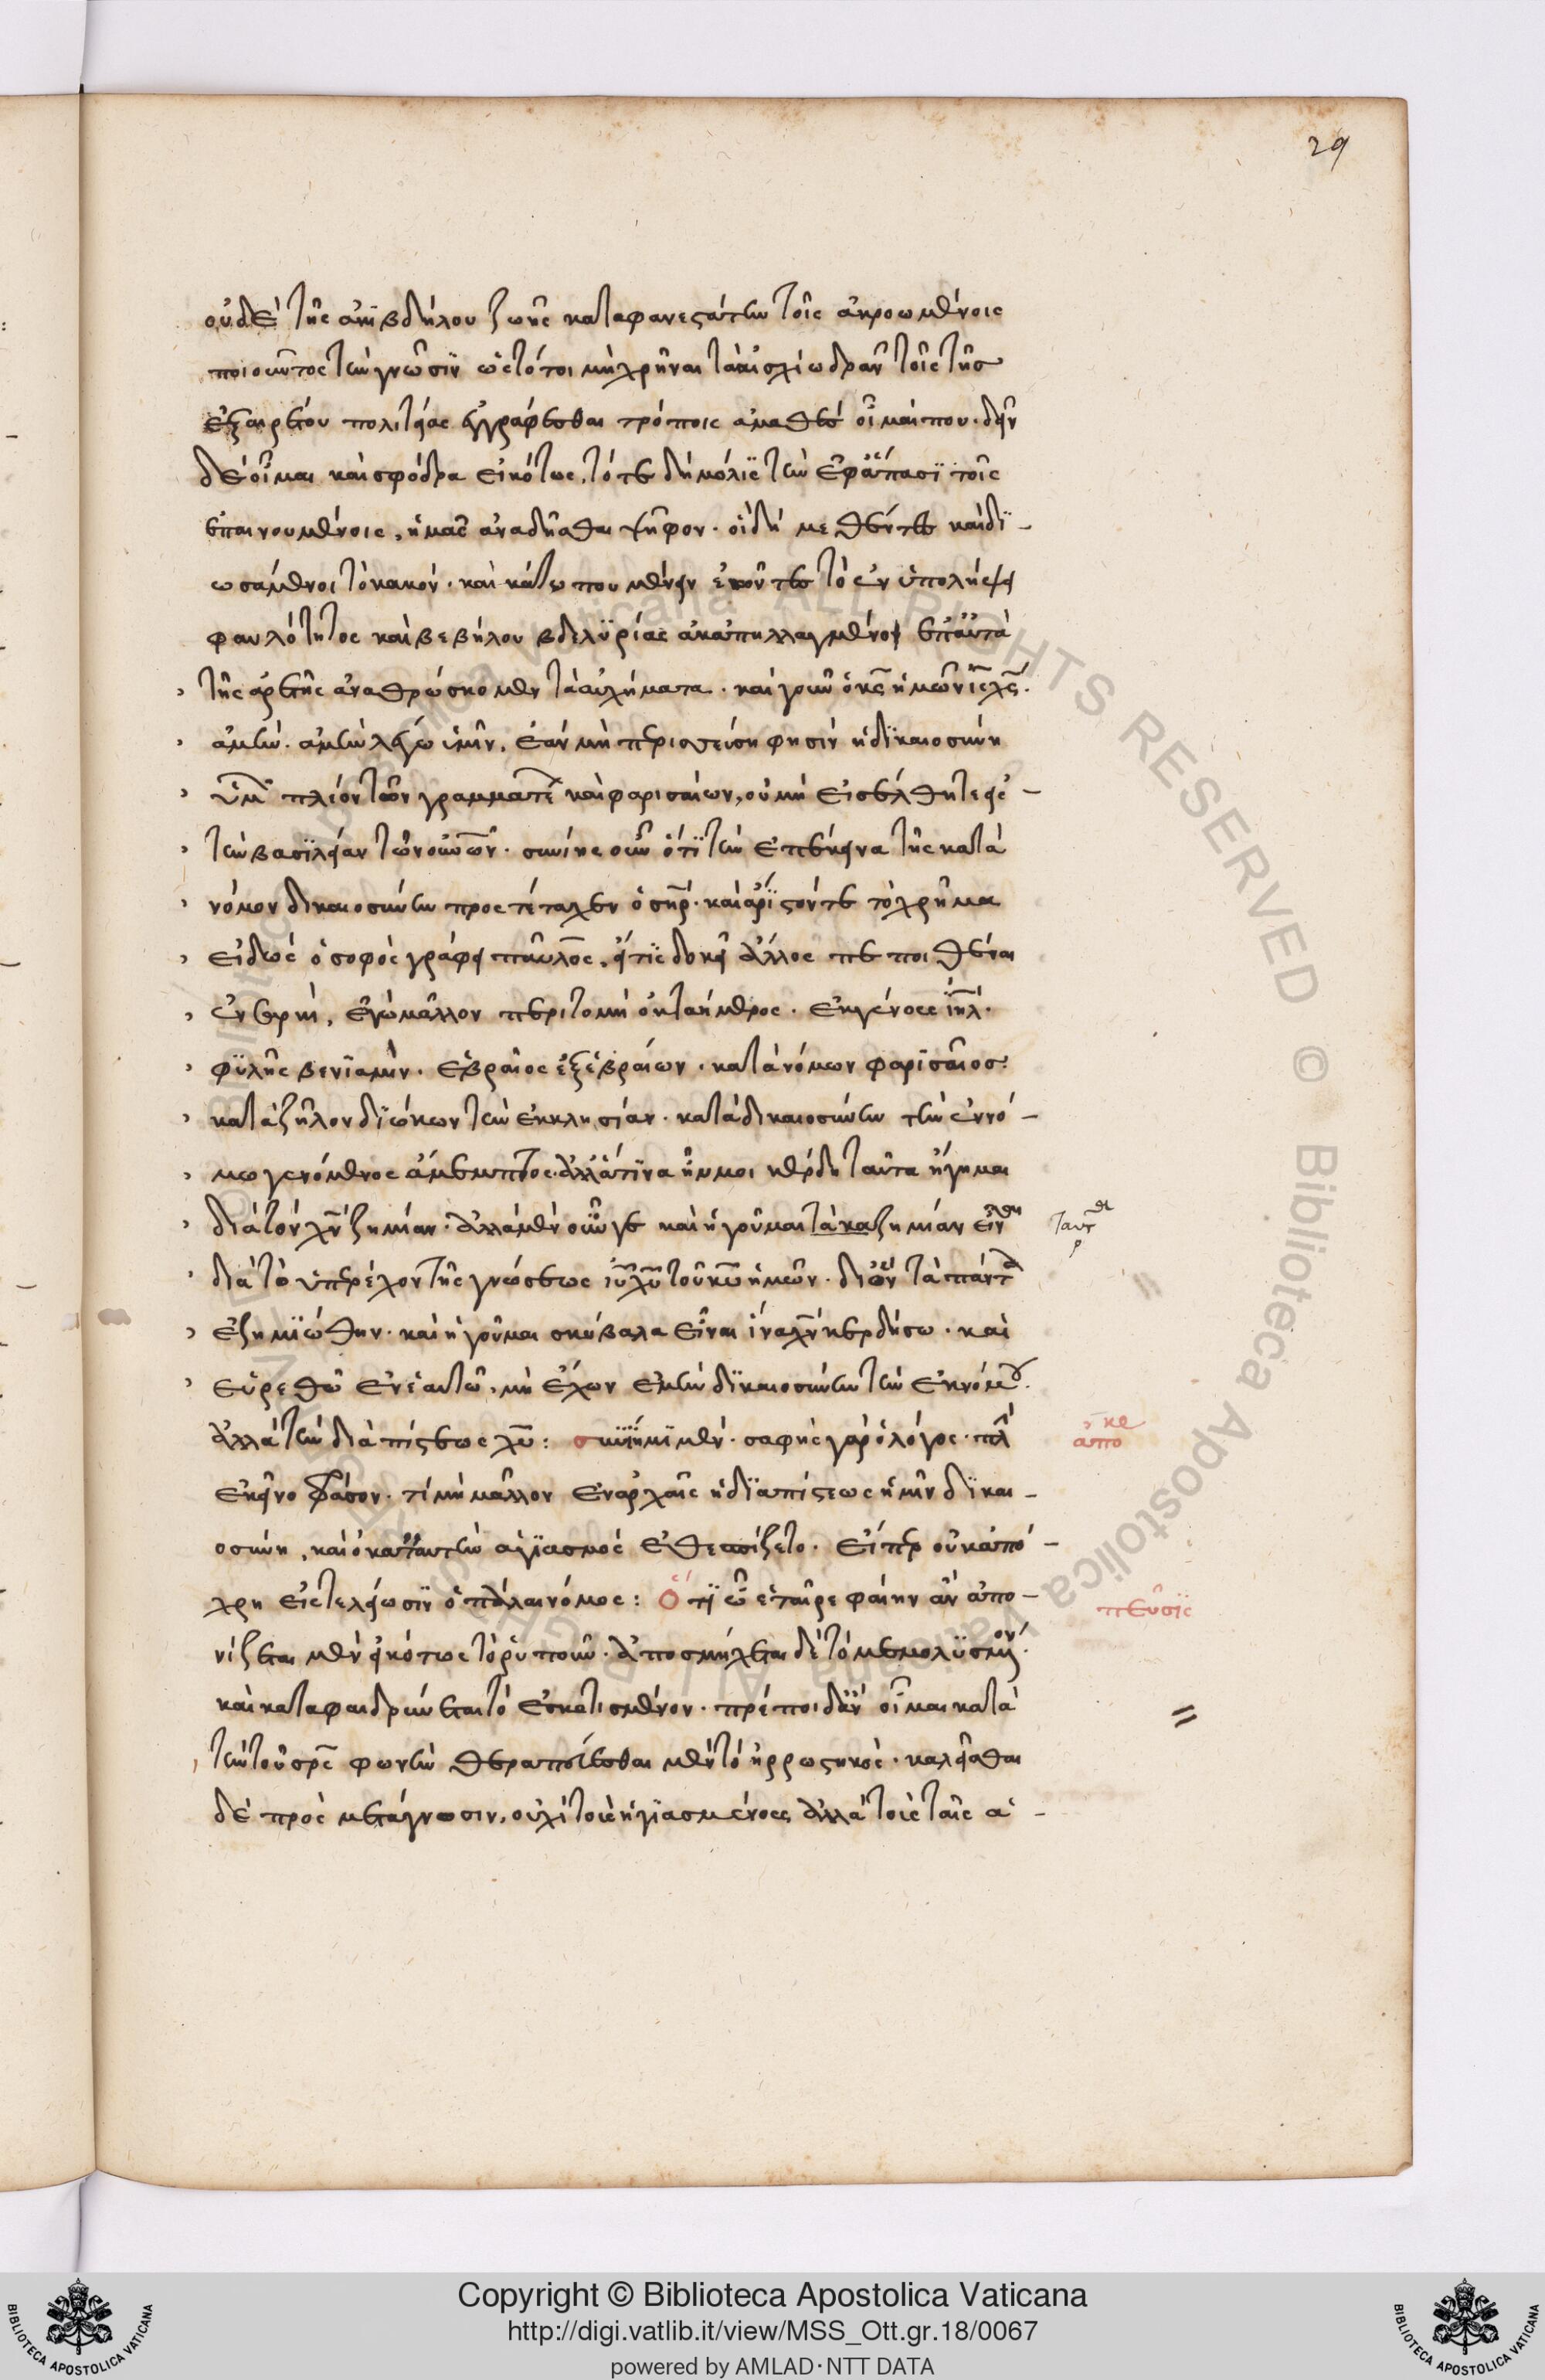 29
οὐδὲ τῆς ἀκιβδήλου ζωῆς καταφανεστάτην τοῖς ἀκροωμένοις
ποιοῦντος τὴν γνῶσιν ὡς τό τοι μὴ χρῆναι τὰ αἰσχίω δρᾶν τοῖς τῆς
ἐξαιρέτου πολιτείας ἐγγράφεσθαι τρόποις ἀμαθὲς οἶμαί που. δεῖν
δὲ οἶμαι καὶ σφόδρα εἰκότως, τότε δὴ μόλις τὴν ἐφ' ἅπασι τοῖς
ἐπαινουμένοις, ἡμᾶς ἀναδεῖσθαι ψῆφον. οἱ δὴ μεθέντες καὶ δι-
ωσάμενοι τὸ κακόν. καὶ κάτω που μένειν ἐῶντες τὸ ἐν ὑπολήψει
φαυλότητος καὶ βεβήλου βδελυρίας ἀπηλλαγμένοι ἐπ' αὐτὰ
τῆς ἀρετῆς ἀναθρώσκομεν τὰ αὐχήματα. καὶ γοῦν ὁ κς ἡμῶν ις χς.
ἀμήν. ἀμὴν λέγω ὑμῖν, ἐὰν μὴ περισσεύσῃ φησὶν ἡ δικαιοσύνη
ὑμ πλέον τῶν γραμματέ καὶ φαρισαίων, οὐ μὴ εἰσέλθητε εἰς
τὴν βασιλείαν τῶν οὐνων. συνίης οὖν ὅτι τὴν ἐπέκεινα τῆς κατὰ
νόμον δικαιοσύνην προστέταχεν ὁ σηρ. καὶ ἄριστόν τε τὸ χρῆμα
εἰδὼς ὁ σοφὸς γράφει παῦλος. εἴ τις δοκεῖ ἄλλος πεποιθέναι
ἐν σαρκί, ἐγὼ μᾶλλον περιτομῇ ὀκταήμερος. ἐκ γένους ιηλ.
φυλῆς βενιαμίν. ἑβραῖος ἐξ ἑβραίων. κατὰ νόμον φαρισαῖος.
κατὰ ζῆλον διώκων τὴν ἐκκλησίαν. κατὰ δικαιοσύνην τὴν ἐν νό-
μῳ γενόμενος ἄμεμπτος. ἀλλ' ἅτινα ἦν μοι κέρδη ταῦτα ἥγημαι
διὰ τὸν χν ζημίαν. ἀλλὰ μὲν οὖν γε καὶ ἡγοῦμαι τὰ κα ζημίαν εἶν
διὰ τὸ ὑπερέχον τῆς γνώσεως ιυ χυ τοῦ κυ ἡμῶν. δι' ὃν τὰ πάντ
ἐζημιώθην. καὶ ἡγοῦμαι σκύβαλα εἶναι ἵνα χν κερδήσω. καὶ
εὑρεθῶ ἐν ἑαυτῷ, μὴ ἔχων ἐμὴν δικαιοσύνην τὴν ἐκ νόμου.
ἀλλὰ τὴν διὰ πίστεως χυ: συνίημι μέν. σαφὴς γὰρ ὁ λόγος. πλ
ἀπο
ἐκεῖνο φράσον. τί μὴ μᾶλλον ἐν ἀρχαῖς ἡ διὰ πίστεως ἡμῖν δικαι-
οσύνη, καὶ ὁ κατ' αὐτὴν ἁγιασμὸς ἐθεσπίζετο. εἴπερ οὐκ ἀπό-
χρη εἰς τελείωσιν ὁ πάλαι νόμος: ὅτι ὦ ἑταῖρε φαίην ἂν ἀπο-
πεῦσις
νίζεται μὲν εἰκότως τὸ ῥυποῦν. ἀποσμήχεται δὲ τὸ μεμολυσμένον.
καὶ καταφαιδρύνεται τὸ ἐσκοτισμένον. πρέποι δ' ἂν οἶμαι κατὰ
τὴν τοῦ σρς φωνὴν θεραπεύεσθαι μὲν τὸ ἠρρωστηκός. καλεῖσθαι
δὲ πρὸς μετάγνωσιν, οὐχὶ τοῖς ἡγιασμένοις ἀλλὰ τοῖς ταῖς ἁ-
Copyright © Biblioteca Apostolica Vaticana
http://digi.vatlib.it/view/MSS_Ott.gr.18/0067
powered by AMLAD·NTT DATA
BIBLIOTECA APOSTOLICA VATICANA
BIBLIOTECA APOSTOLICA VATICANA